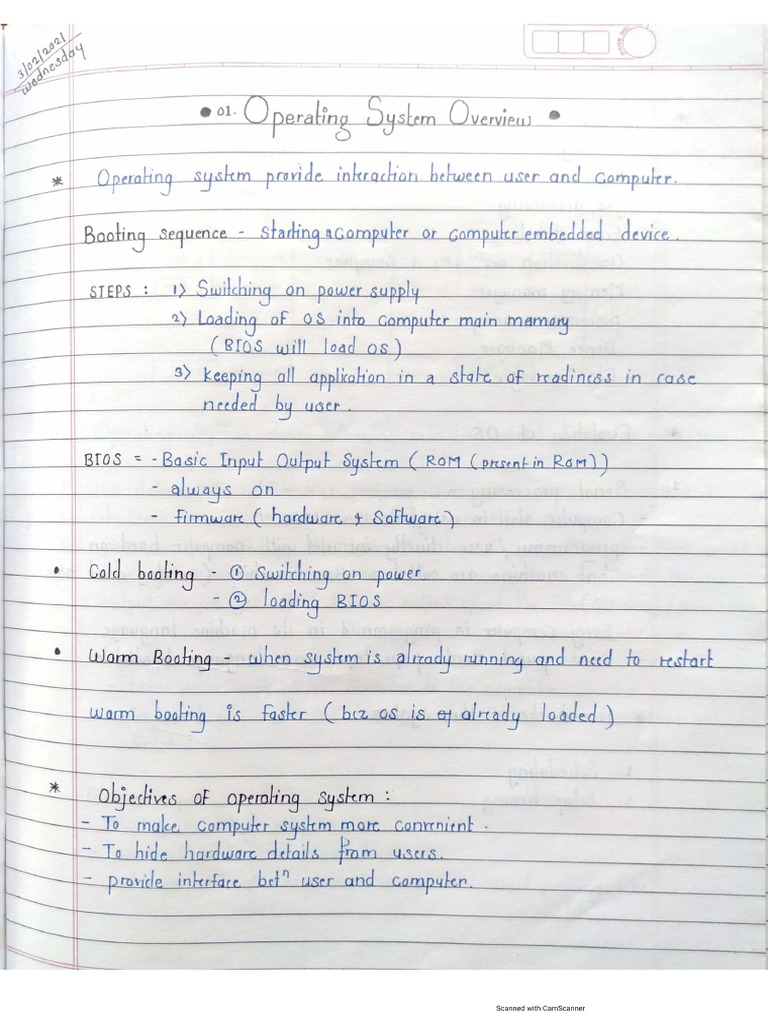 3/02/2021
Wednesday
• 01. Operating System Overview •
* Operating system provide interaction between user and computer.
Booting sequence - starting a computer or computer embedded device.
STEPS : 1) Switching on power supply
2) Loading of OS into computer main memory
(BIOS will load OS)
3) Keeping all application in a state of readiness in case
needed by user.
BIOS = - Basic Input Output System ( ROM (present in ROM))
- always on
- firmware ( hardware & Software)
• Cold booting - ① Switching on power
- ② loading BIOS
• Warm Booting - when system is already running and need to restart
warm booting is faster ( bcz OS is already loaded )
* Objectives of operating system :
- To make computer system more convenient.
- To hide hardware details from users.
- provide interface betⁿ user and computer.
Scanned with CamScanner